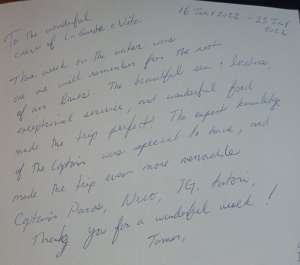 16 July 2022 - 23 July
2022
To the wonderful
crew of
This week on the water was
one we will remember for the rest
of our lives. The beautiful sea,
exceptional service, and wonderful food
made the trip perfect! The expert knowledge
of the Captain was special to have, and
made the trip even more memorable
Captain Nico, TG,
Thank you for a wonderful week!